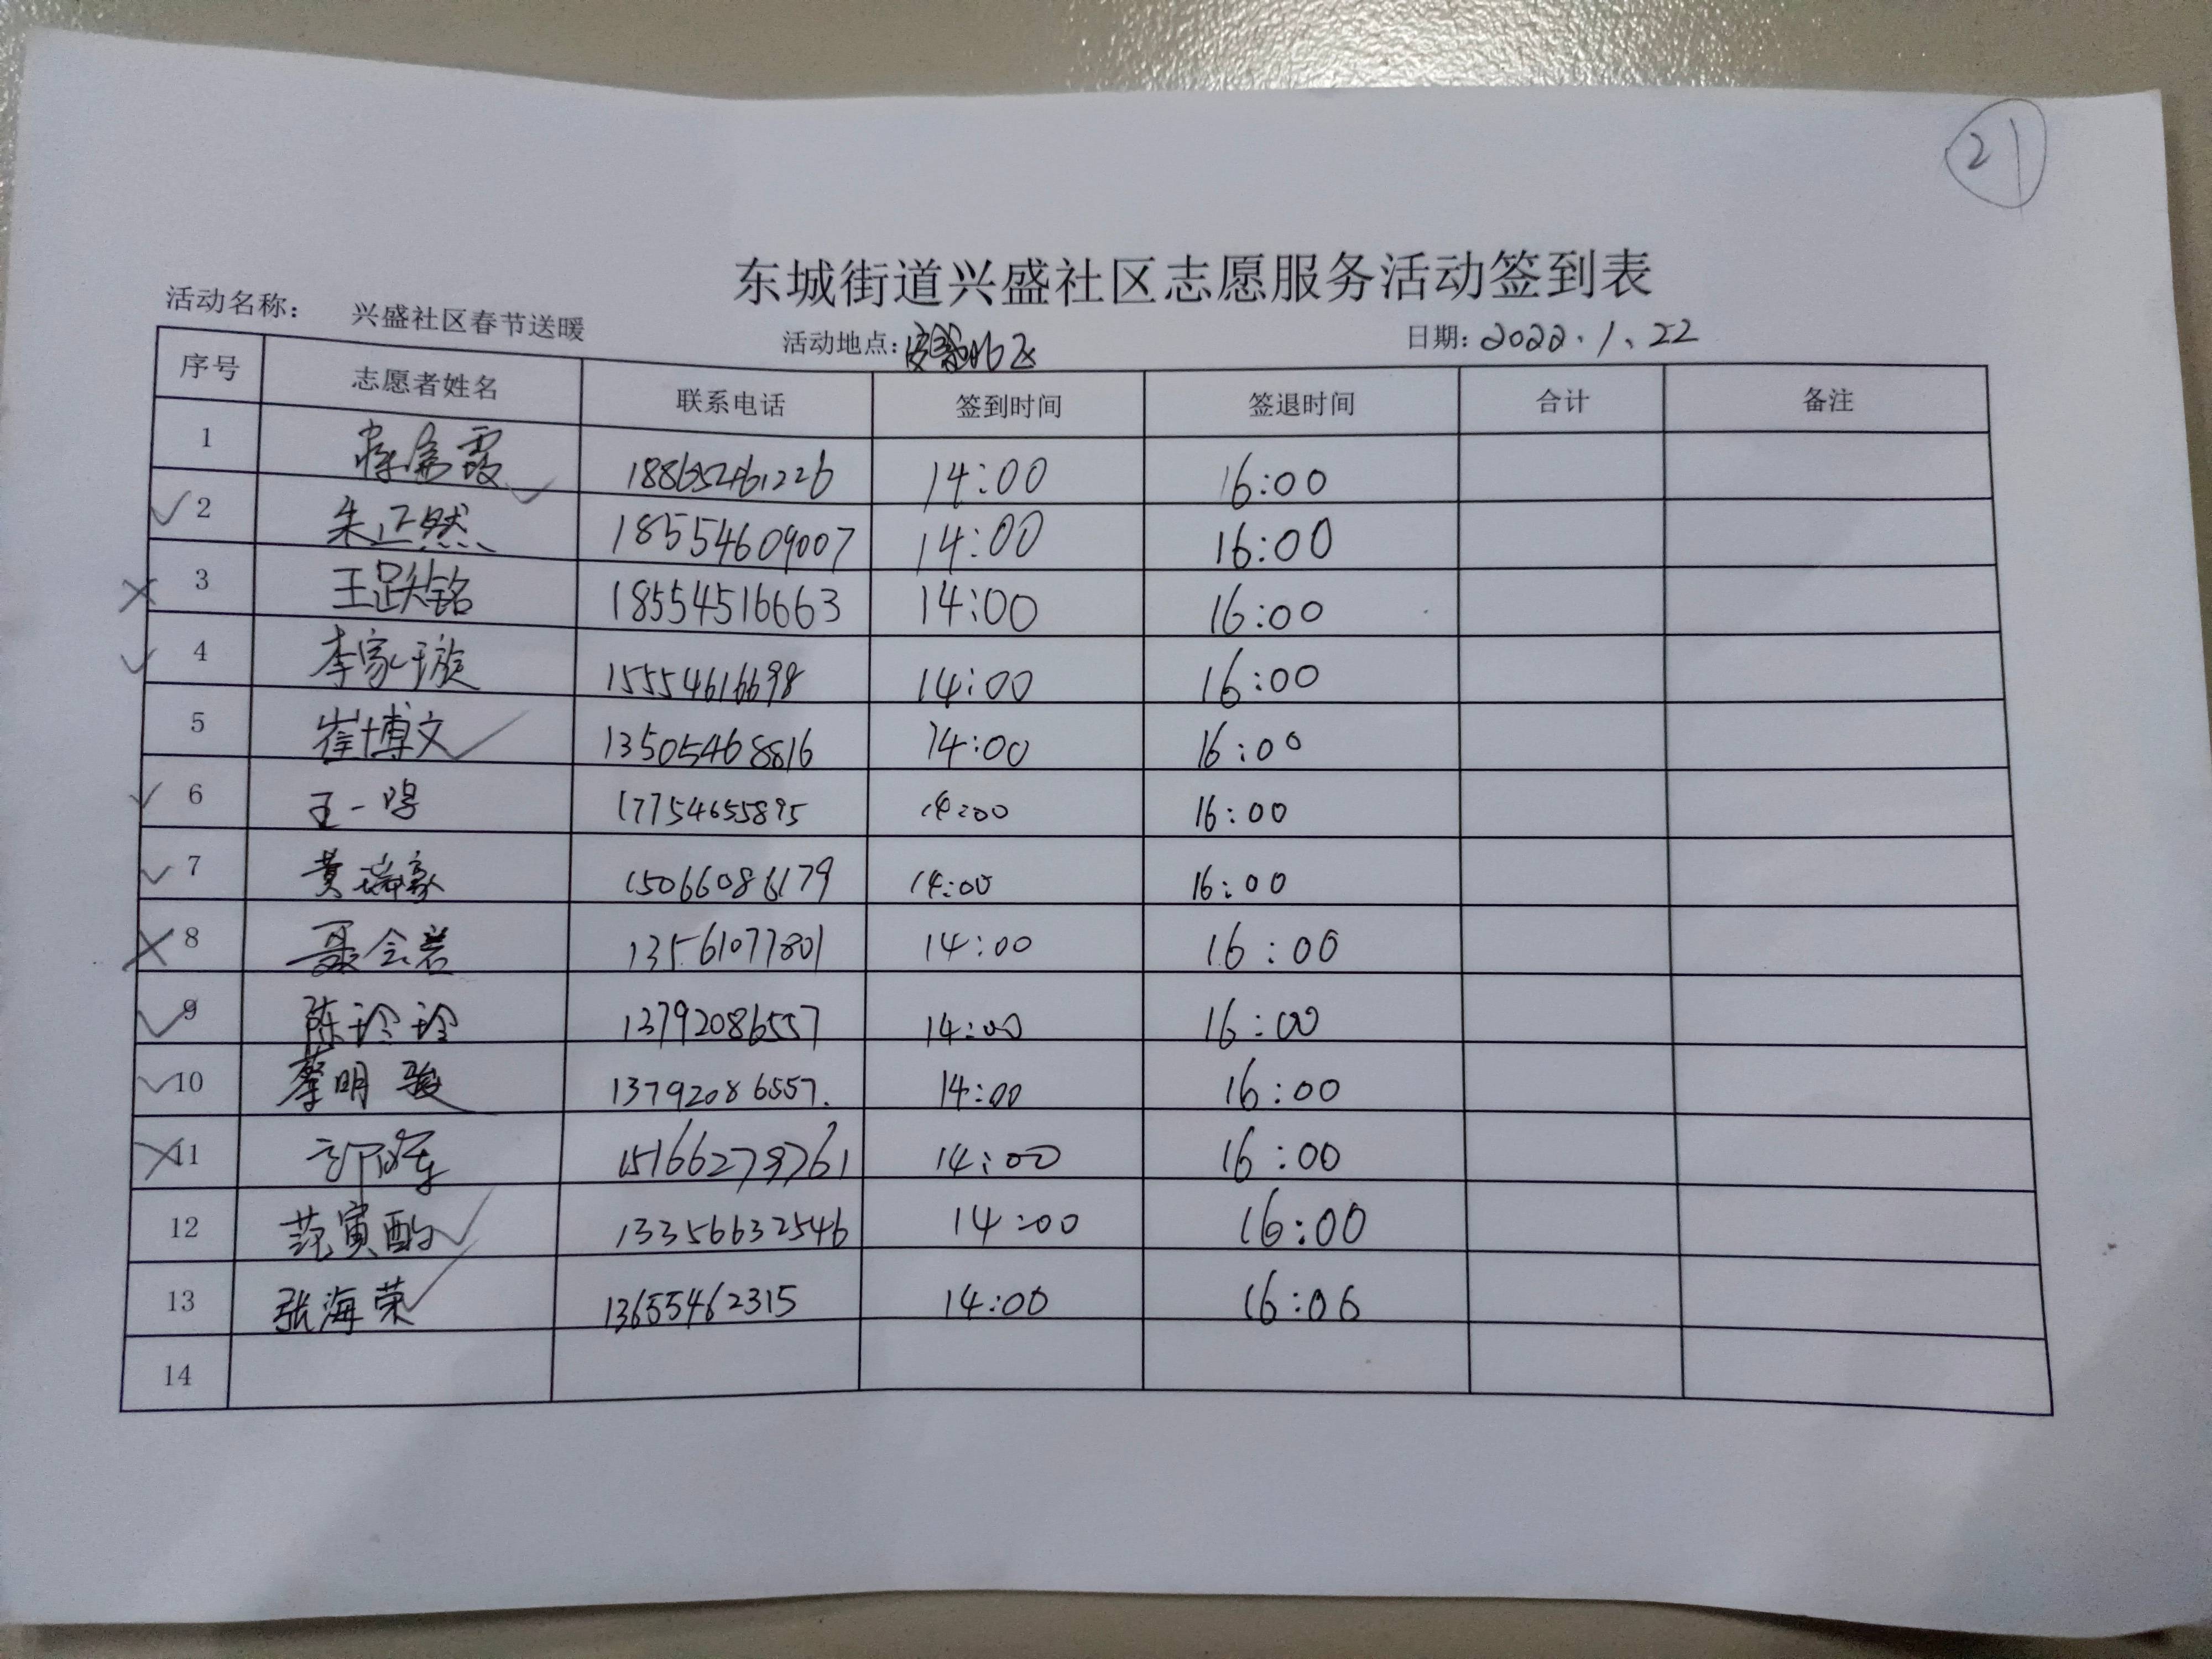 21
东城街道兴盛社区志愿服务活动签到表
活动名称: 兴盛社区春节送暖 活动地点: 日期: 2022.1.22
序号 志愿者姓名 联系电话 签到时间 签退时间 合计 备注
1 14:00 16:00
2 朱正然 18554609007 14:00 16:00
3 王跌铭 18554516663 14:00 16:00
4 李家璇 15554616698 14:00 16:00
5 崔博文 13505468816 14:00 16:00
6 王一 17754655895 14:00 16:00
7 黄瑞豪 15066086179 14:00 16:00
8 聂会岩 13561077801 14:00 16:00
9 陈玲玲 13792086557 14:00 16:00
10 蔡明骏 13792086557. 14:00 16:00
11 14:00 16:00
12 范寅酌 13356632546 14:00 16:00
13 张海荣 13655462315 14:00 16:06
14